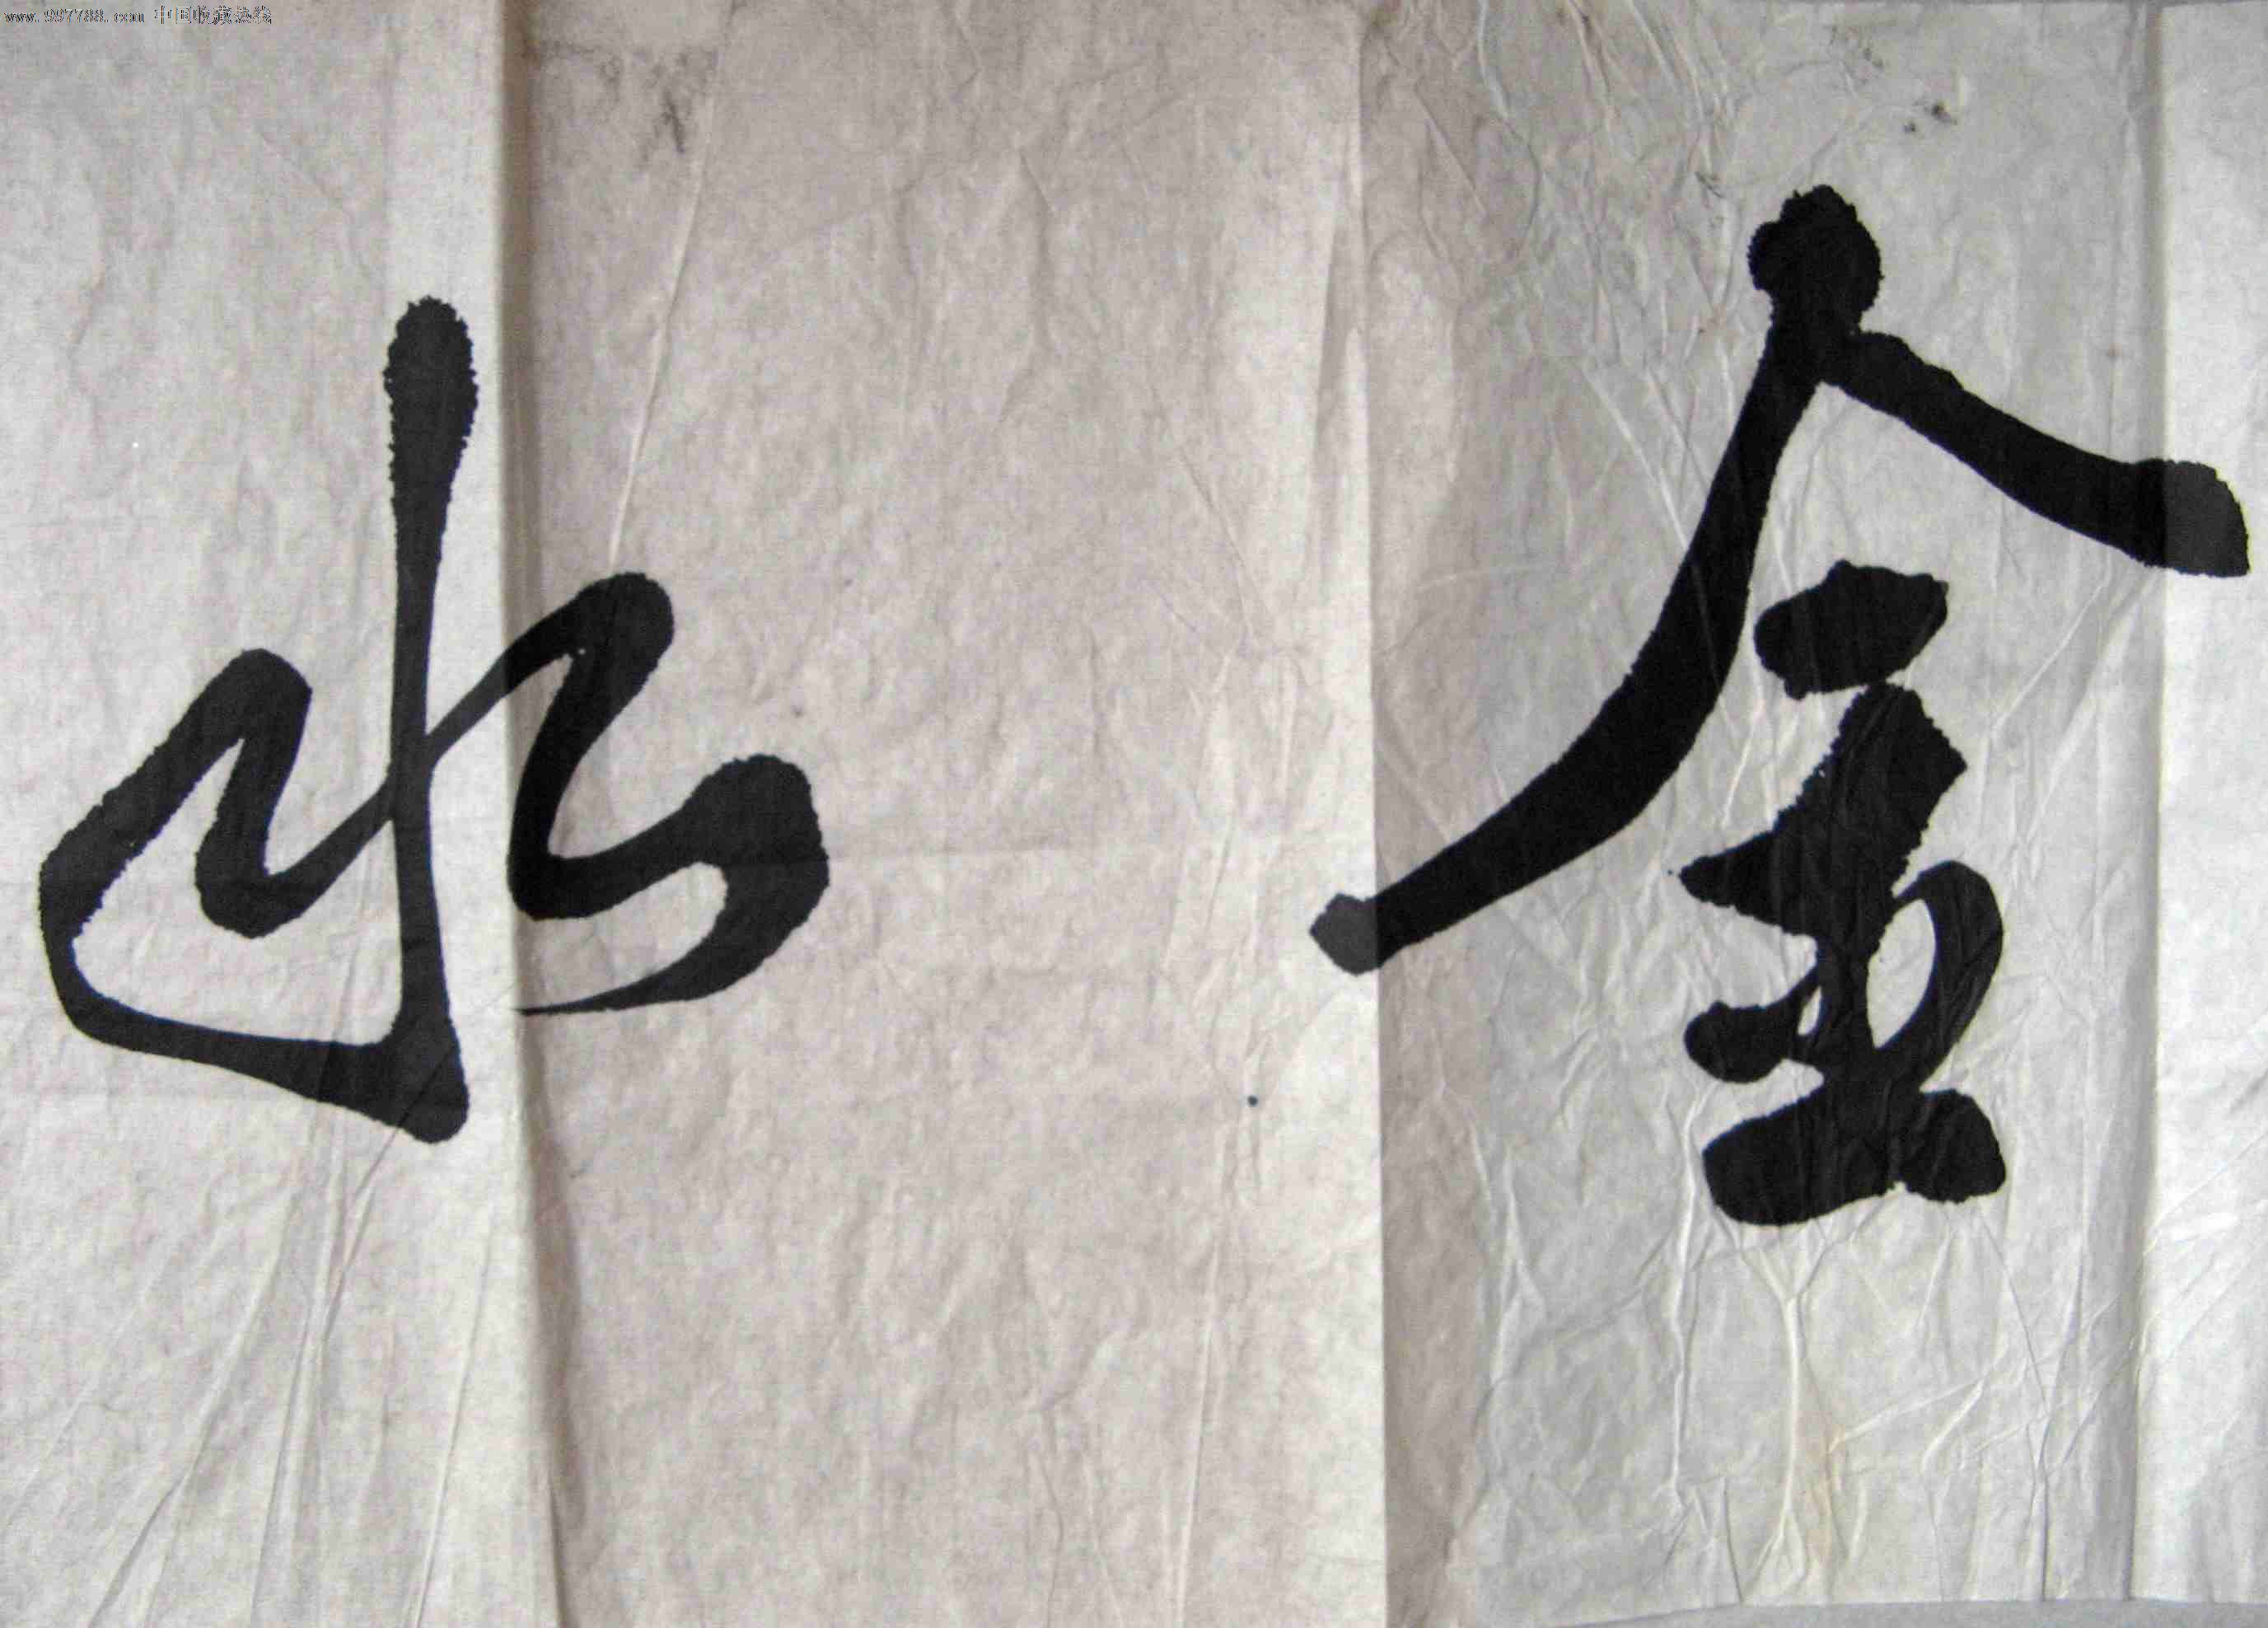 www.997788.com 中国收藏热线
金